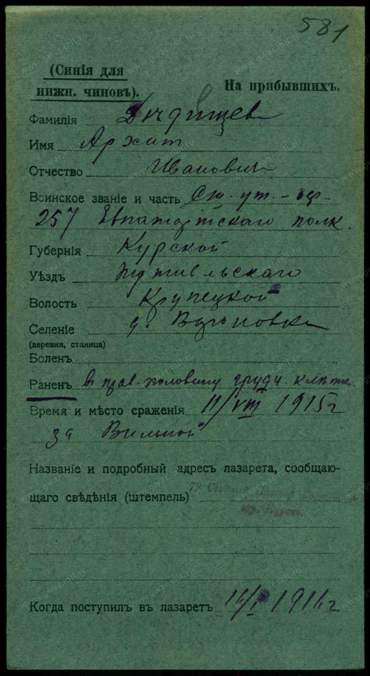 581
(Синія для
нижн. чиновъ).
На прибывшихъ.
Фамилія
Имя Архип
Отчество Иванович
Воинское званіе и часть Ст. ут. - оф.
257 Евпаторійскаго полк.
Губернія Курской
Уѣздъ Путивльскаго
Волость Крупецкой
Селеніе д.
(деревня, станица)
Боленъ
Раненъ в прав. половину груди. клѣтк.
Время и мѣсто сраженія 11/VIII 1915 г
за Вильной
Названіе и подробный адресъ лазарета, сообщаю-
щаго свѣдѣнія (штемпель)
Когда поступилъ въ лазаретъ 1916 г